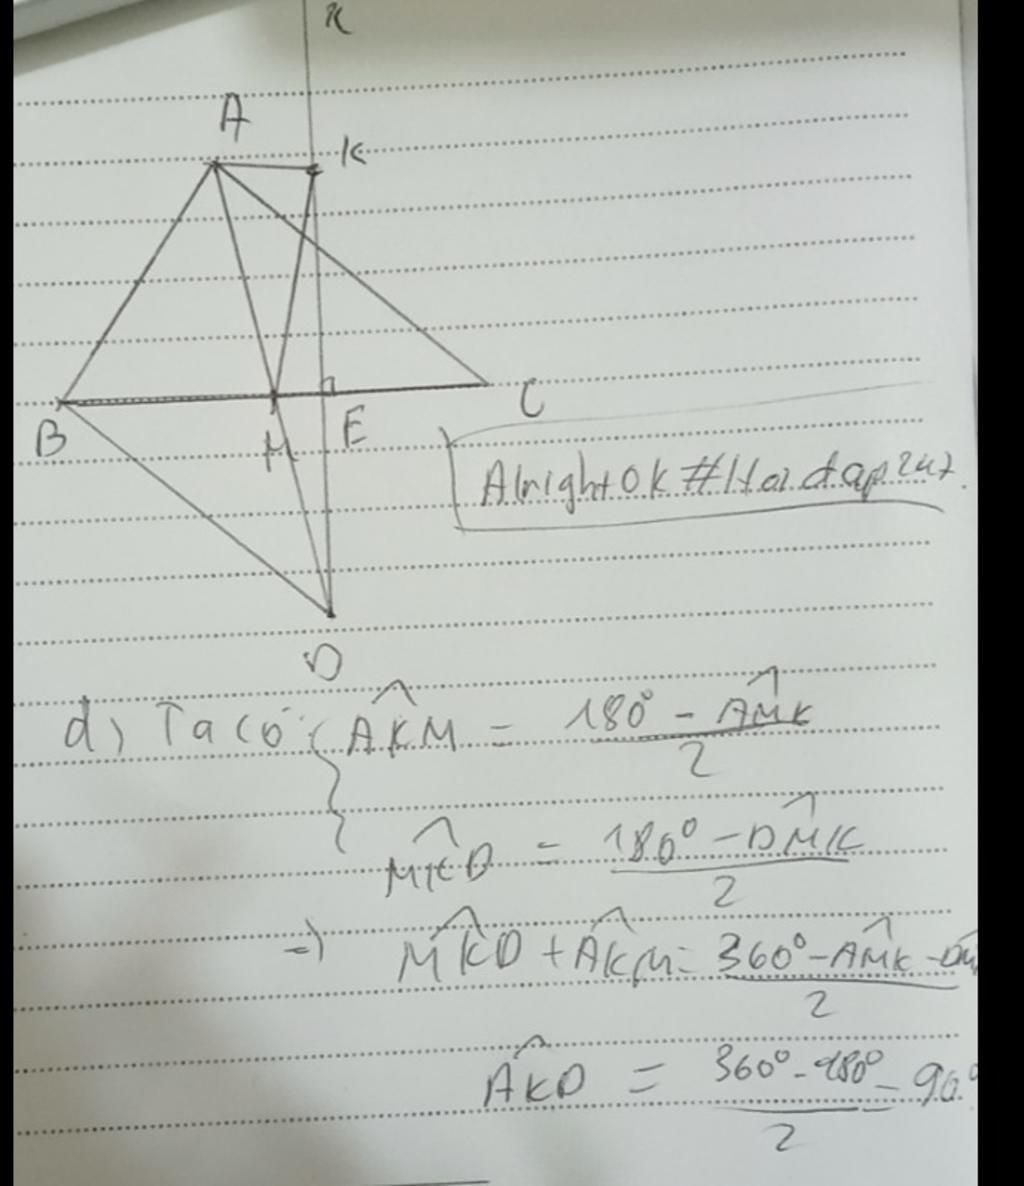 x
A
K
B
M
E
C
Alright Ok #Hoidap247
D
d) Ta có { \widehat{AKM} = \frac{180° - \widehat{AMK}}{2}
\widehat{MKD} = \frac{180° - \widehat{DMK}}{2}
=) \widehat{MKD} + \widehat{AKM} = \frac{360° - \widehat{AMK} -}{2}
\widehat{AKD} = \frac{360° - 180°}{2} = 90°